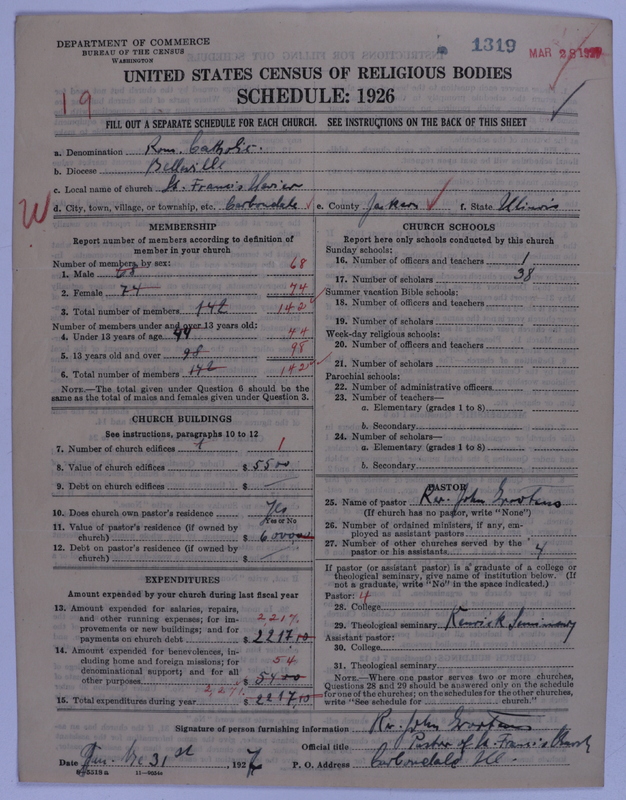 DEPARTMENT OF COMMERCE
BUREAU OF THE CENSUS
WASHINGTON
1319
MAR 28 1927
UNITED STATES CENSUS OF RELIGIOUS BODIES
19
SCHEDULE: 1926
FILL OUT A SEPARATE SCHEDULE FOR EACH CHURCH. SEE INSTRUCTIONS ON THE BACK OF THIS SHEET
a. Denomination Rom. Catholic.
b. Diocese Belleville
c. Local name of church St. Francis Xavier
W d. City, town, village, or township, etc. Carbondale e. County Jackson f. State Illinois
MEMBERSHIP
Report number of members according to definition of
member in your church
Number of members, by sex:
1. Male 68 68
2. Female 74 74
3. Total number of members 142 142
Number of members under and over 13 years old:
4. Under 13 years of age 44 44
5. 13 years old and over 98 98
6. Total number of members 142 142
NOTE.—The total given under Question 6 should be
same as the total of males and females given under Question 3.
CHURCH BUILDINGS
See instructions, paragraphs 10 to 12
7. Number of church edifices 1 1
8. Value of church edifices $ 5500
9. Debt on church edifices $ —
10. Does church own pastor's residence Yes
Yes or No
11. Value of pastor's residence (if owned by
church) $ 6000
12. Debt on pastor's residence (if owned by
church) $ —
EXPENDITURES
Amount expended by your church during last fiscal year
13. Amount expended for salaries, repairs,
and other running expenses; for im- 2217
provements or new buildings; and for
payments on church debt $ 2217
14. Amount expended for benevolences, in-
cluding home and foreign missions; for 54
denominational support; and for all
other purposes $ 5400
2,271
15. Total expenditures during year $ 2217.10
CHURCH SCHOOLS
Report here only schools conducted by this church
Sunday schools:
16. Number of officers and teachers 1
17. Number of scholars 38
Summer vacation Bible schools:
18. Number of officers and teachers
19. Number of scholars
Week-day religious schools:
20. Number of officers and teachers
21. Number of scholars
Parochial schools:
22. Number of administrative officers
23. Number of teachers—
a. Elementary (grades 1 to 8)
b. Secondary
24. Number of scholars—
a. Elementary (grades 1 to 8)
b. Secondary
PASTOR
25. Name of pastor Rev. John
(If church has no pastor, write "None")
26. Number of ordained ministers, if any, em-
ployed as assistant pastors
27. Number of other churches served by the
pastor or his assistants 4
If pastor (or assistant pastor) is a graduate of a college or
theological seminary, give name of institution below. (If
not a graduate, write "No" in the space indicated.)
Pastor: 4
28. College
29. Theological seminary Kenrick Seminary
Assistant pastor:
30. College
31. Theological seminary
NOTE.—Where one pastor serves two or more churches,
Questions 28 and 29 should be answered only on the schedule
for one of the churches; on the schedules for the other churches,
write "See schedule for church."
Signature of person furnishing information Rev. John
Official title Pastor of St. Francis Church
Date 31st, 1927 P. O. Address Carbondale Ill.
11—9554